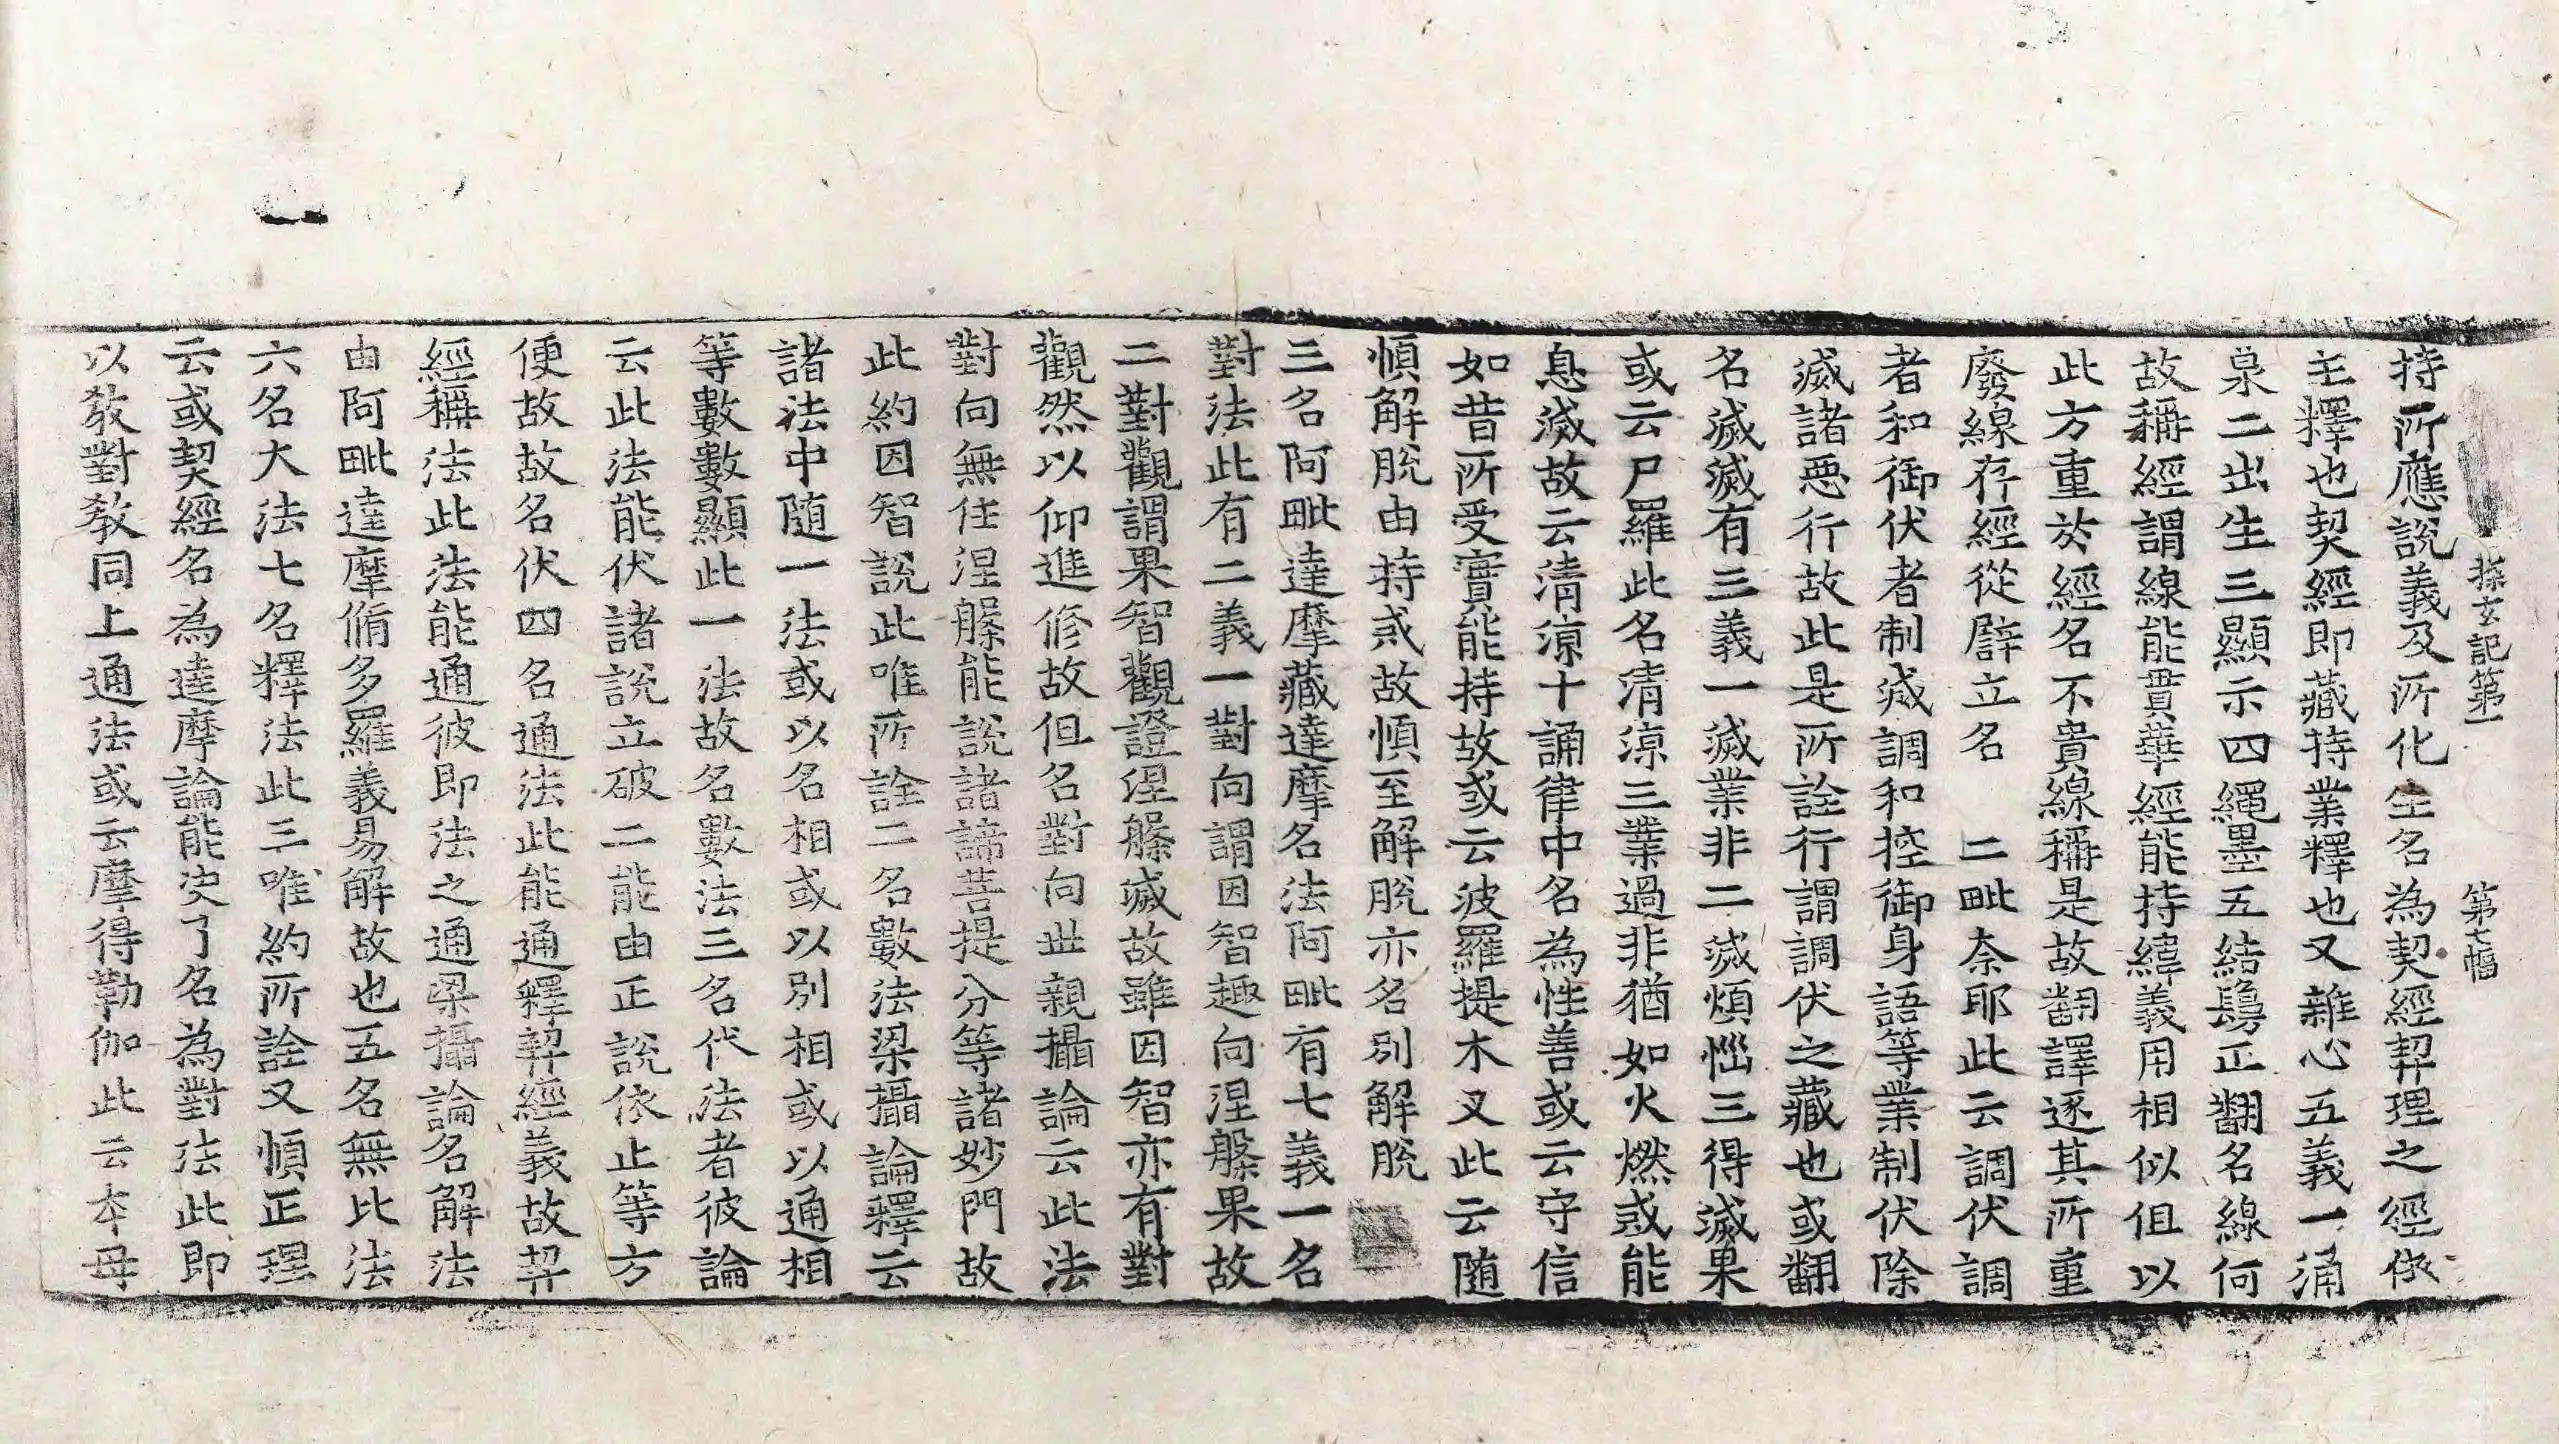 探玄記第一　第七幅
持所應說義及所化生名為契經契理之經依
主釋也契經即藏持業釋也又雜心五義一涌
泉二出生三顯示四繩墨五結鬘正翻名線何
故稱經謂線能貫華經能持緯義用相似但以
此方重於經名不貴線稱是故翻譯逐其所重
廢線存經從譬立名　二毗奈耶此云調伏調
者和御伏者制滅調和控御身語等業制伏除
滅諸惡行故此是所詮行謂調伏之藏也或翻
名滅滅有三義一滅業非二滅煩惱三得滅果
或云尸羅此名清涼三業過非猶如火燃或能
息滅故云清涼十誦律中名為性善或云守信
如昔所受實能持故或云波羅提木叉此云隨
順解脫由持戒故順至解脫亦名別解脫
三名阿毗達摩藏達摩名法阿毗有七義一名
對法此有二義一對向謂因智趣向涅槃果故
二對觀謂果智觀證涅槃滅故雖因智亦有對
觀然以仰進修故但名對向世親攝論云此法
對向無住涅槃能說諸諦菩提分等諸妙門故
此約因智說此唯所詮二名數法梁攝論釋云
諸法中隨一法或以名相或以別相或以通相
等數數顯此一法故名數法三名伏法者彼論
云此法能伏諸說立破二能由正說依止等方
便故故名伏四名通法此能通釋契經義故契
經稱法此法能通彼即法之通梁攝論名解法
由阿毗達摩脩多羅義易解故也五名無比法
六名大法七名釋法此三唯約所詮又順正理
云或契經名為達摩論能決了名為對法此即
以教對教同上通法或云摩得勒伽此云本母